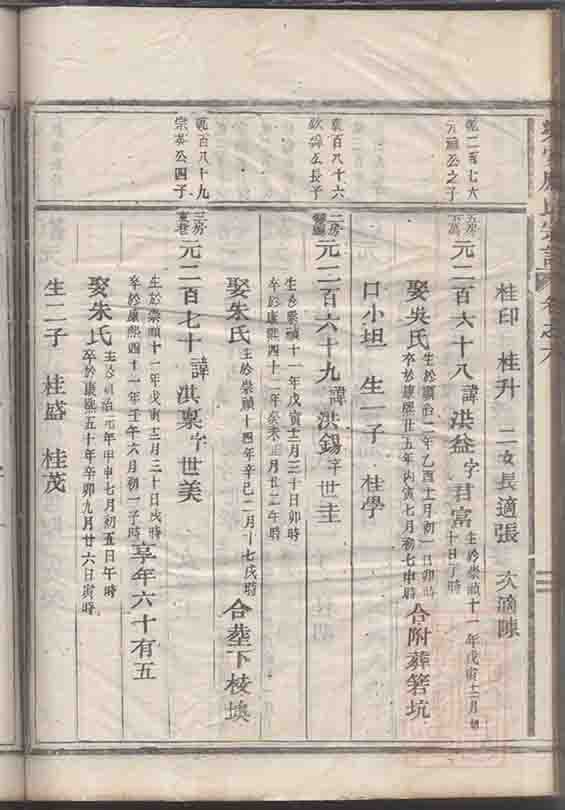 桂印 桂升 二女長適張 次適陳
乾二百七六
元 公之子
五房
元二百六十八諱洪益字君富生於崇禎十一年戊寅十二月初十日丁時
娶吳氏生於順治二年乙酉十二月初一日卯時
卒於康熙廿五年丙寅七月初七申時
合附葬箬坑
口小坦 生一子 桂學
乾百八十六
公長子
二房
元二百六十九諱洪錫字世主
生於崇禎十一年戊寅十二月二十日卯時
卒於康熙四十一年癸未 月廿二午時
娶朱氏生於崇禎十四年辛巳二月十七戌時
合葬下棱塽
乾百八十九
宗 公四子
三房
東巷
元二百七十諱淇稟字世美
生於崇禎十一年戊寅十二月二十日戌時
卒於康熙四十一年壬午六月初一子時
享年六十有五
娶朱氏生於順治元年甲申七月初五日午時
卒於康熙五十年辛卯九月廿六日寅時
生二子 桂盛 桂茂